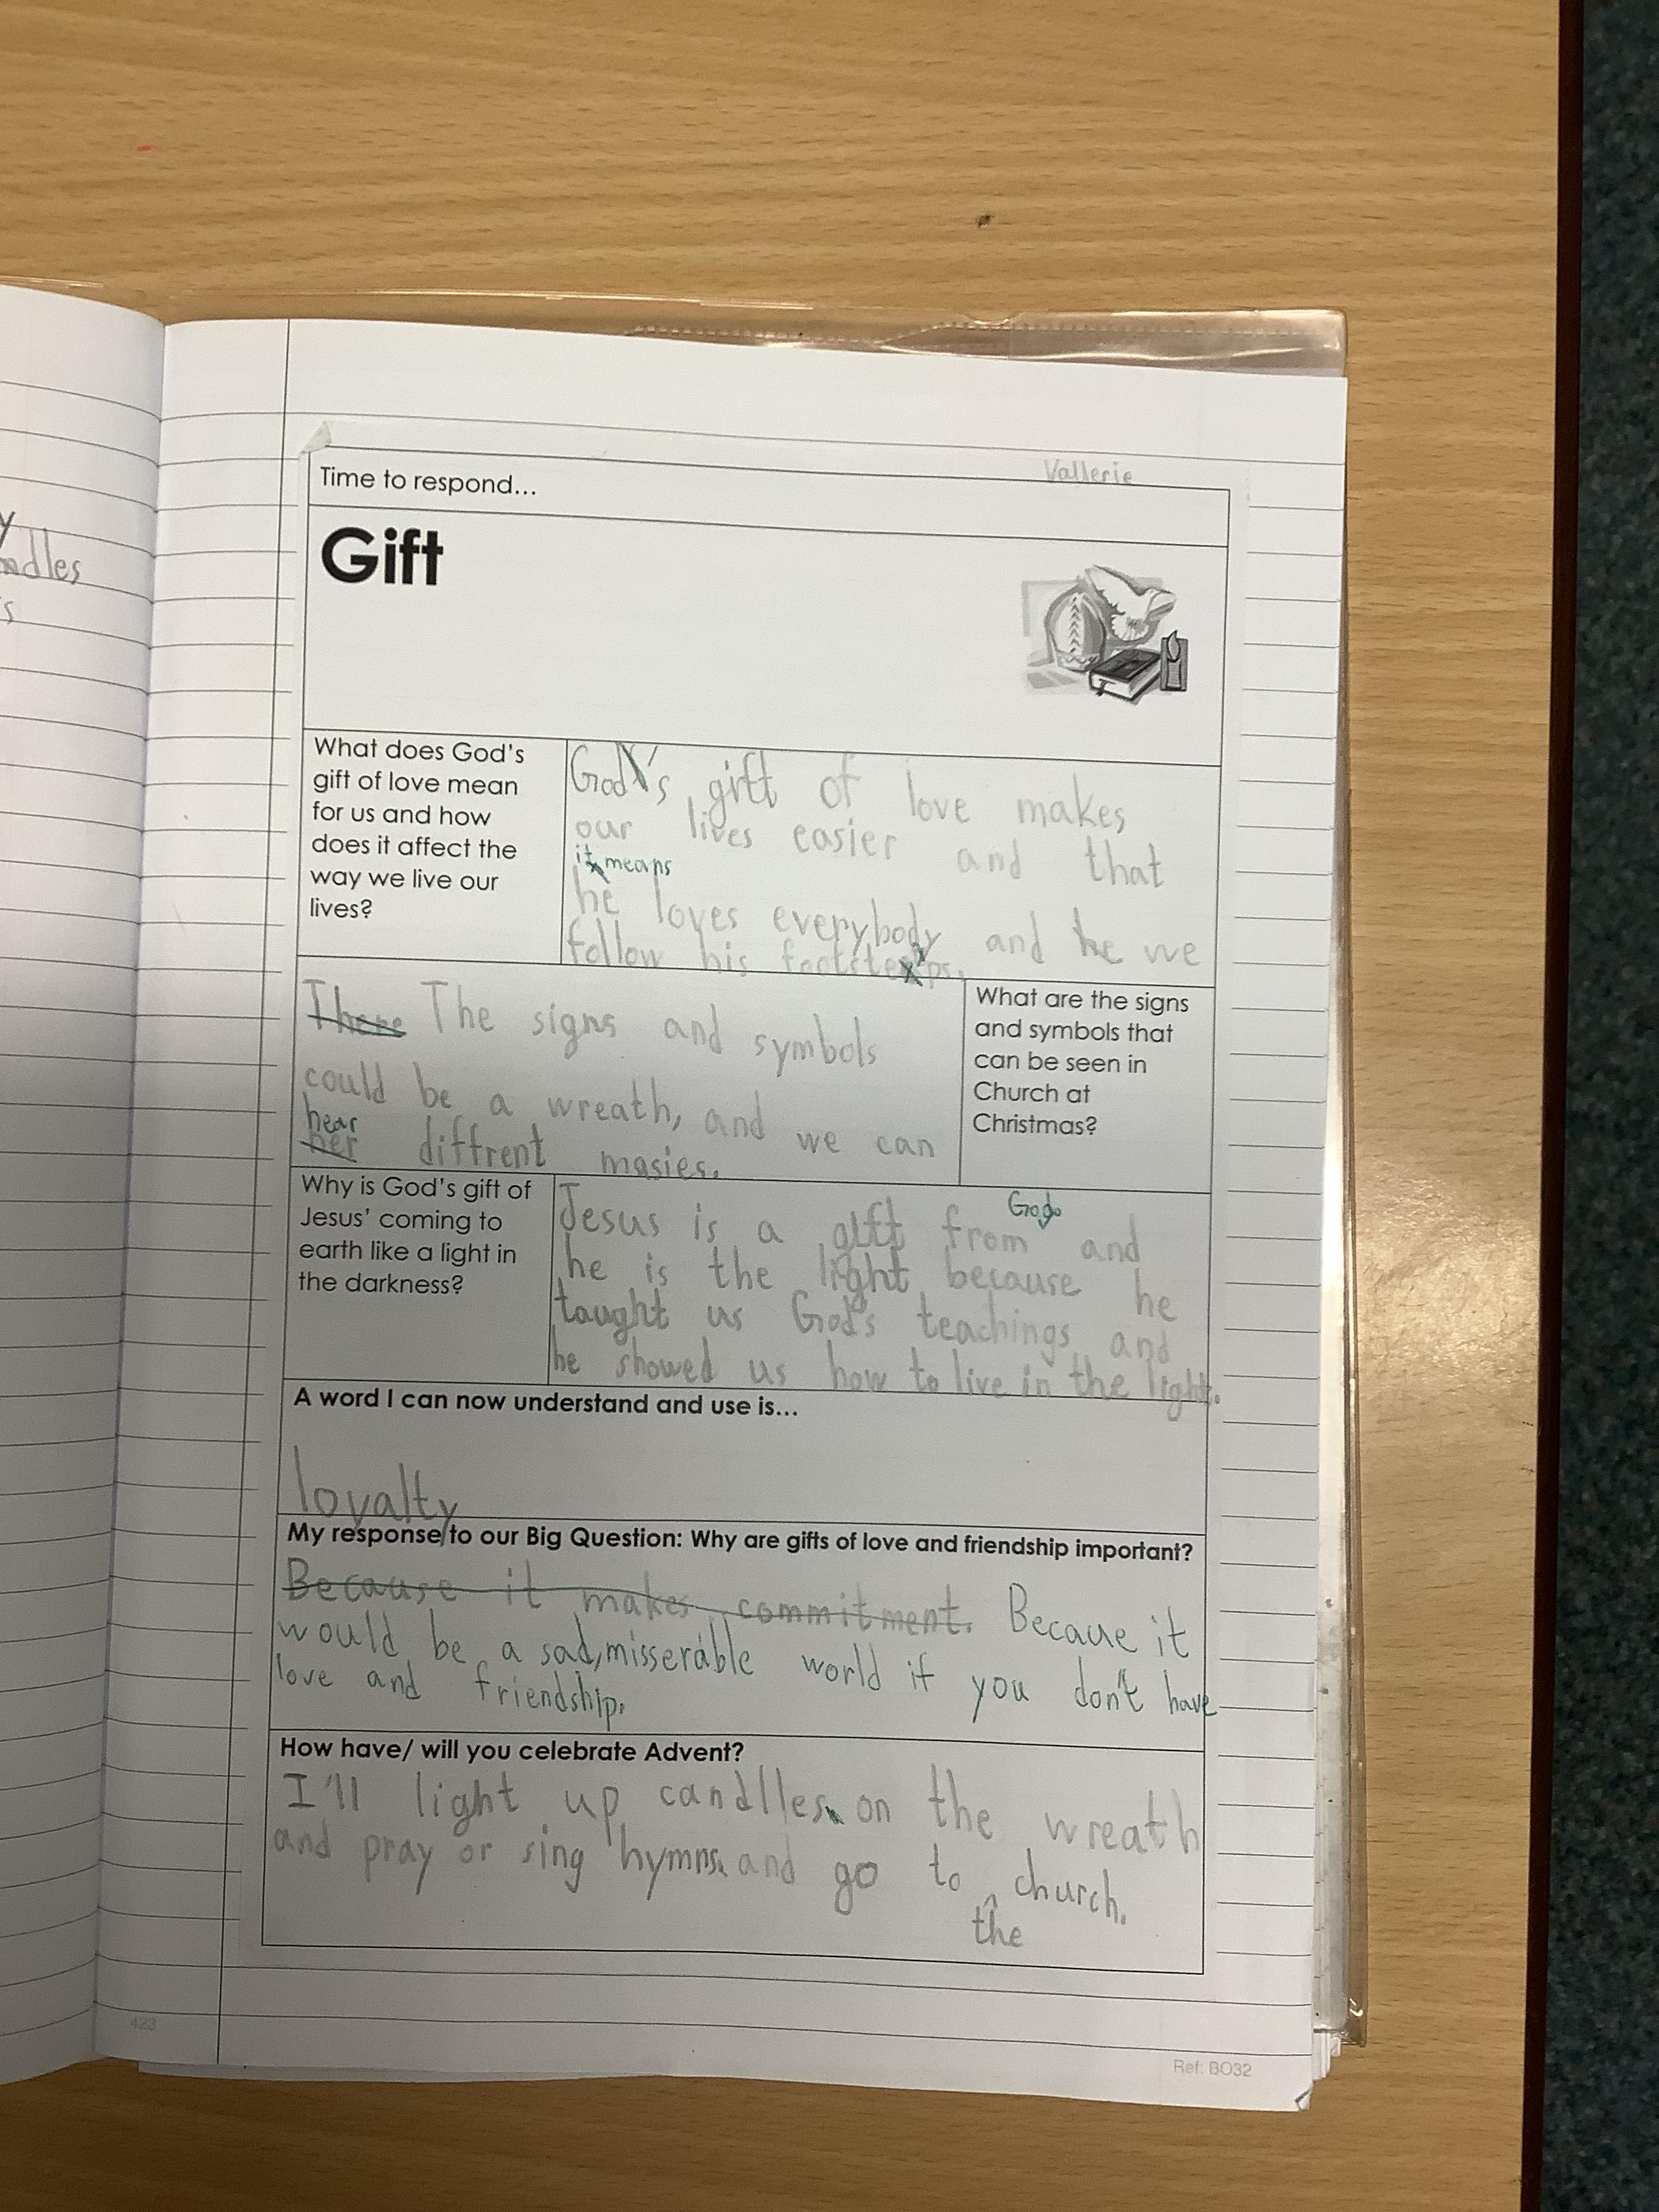 y
ndles
s
Time to respond...
Vallerie
Gift
What does God's
gift of love mean
for us and how
does it affect the
way we live our
lives?
God's gift of love makes
our lives easier and that
it means
he loves everybody and he we
follow his footsteps.
There The signs and symbols
could be a wreath, and we can
hear
her diffrent masies.
What are the signs
and symbols that
can be seen in
Church at
Christmas?
Why is God's gift of
Jesus' coming to
earth like a light in
the darkness?
God
Jesus is a gift from and
he is the light because he
taught us God's teachings and
he showed us how to live in the light.
A word I can now understand and use is...
loyalty
My response to our Big Question: Why are gifts of love and friendship important?
Because it makes commitment. Becaue it
would be a sad, misserable world if you don't have
love and friendship.
How have/ will you celebrate Advent?
I'll light up candlles on the wreath
and pray or sing hymns and go to church.
the
423
Ref: BO32